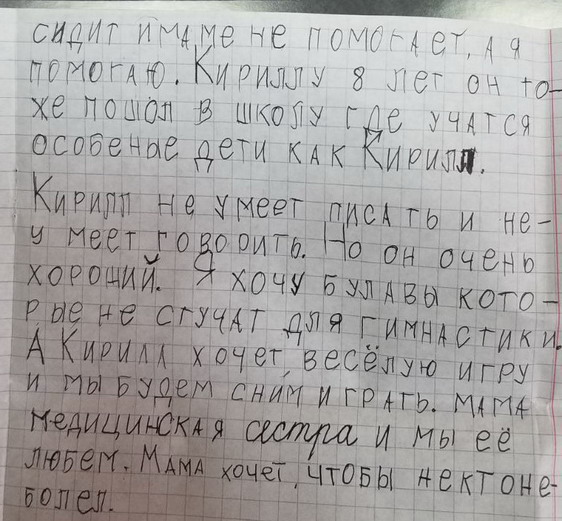 сидит и маме не помогает, а я
помогаю. Кириллу 8 лет он то-
же пошол в школу где учатся
особеные дети как Кирилл.
Кирилл не умеет писать и не-
умеет говорить. Но он очень
хороший. Я хочу булавы кото-
рые не стучат для гимнастики.
А Кирилл хочет весёлую игру
и мы будем сним играть. мама
медицинская сестра и мы её
любем. Мама хочет, чтобы нектоне-
болел.